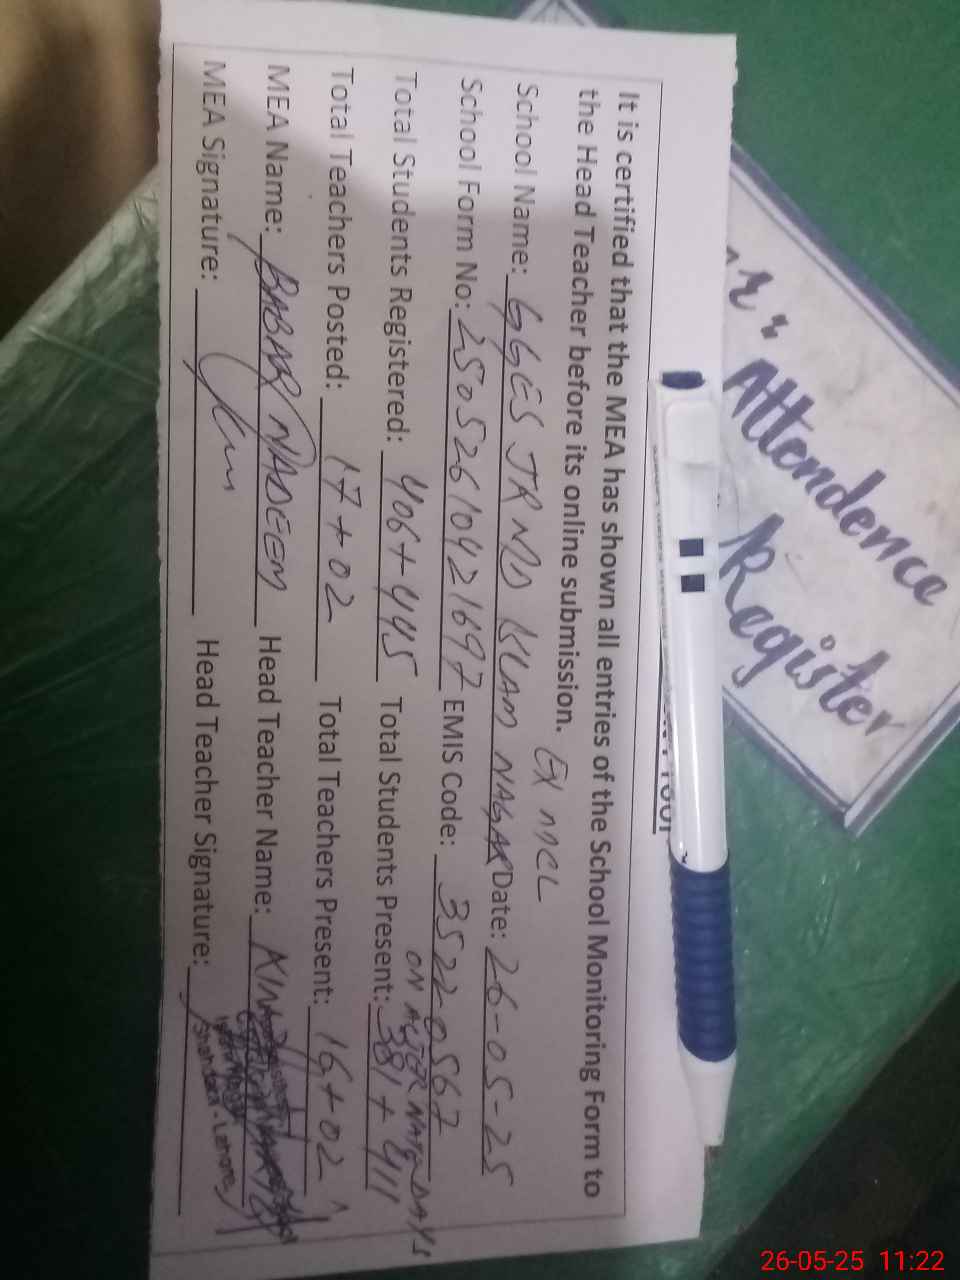 It is certified that the MEA has shown all entries of the School Monitoring Form to
the Head Teacher before its online submission. EX MCL
School Name: GGES JR MD ISLAM NAGAR Date: 26-05-25
School Form No: 25052610421697 EMIS Code: 35220567
ON ALTERNATE DAYS
Total Students Registered: 406+445 Total Students Present: 381+411
Total Teachers Posted: 17+02 Total Teachers Present: 16+02
MEA Name: BABAR NADEEM Head Teacher Name:
MEA Signature: Head Teacher Signature:
Shahdara - Lahore
Attendence
Register
26-05-25 11:22